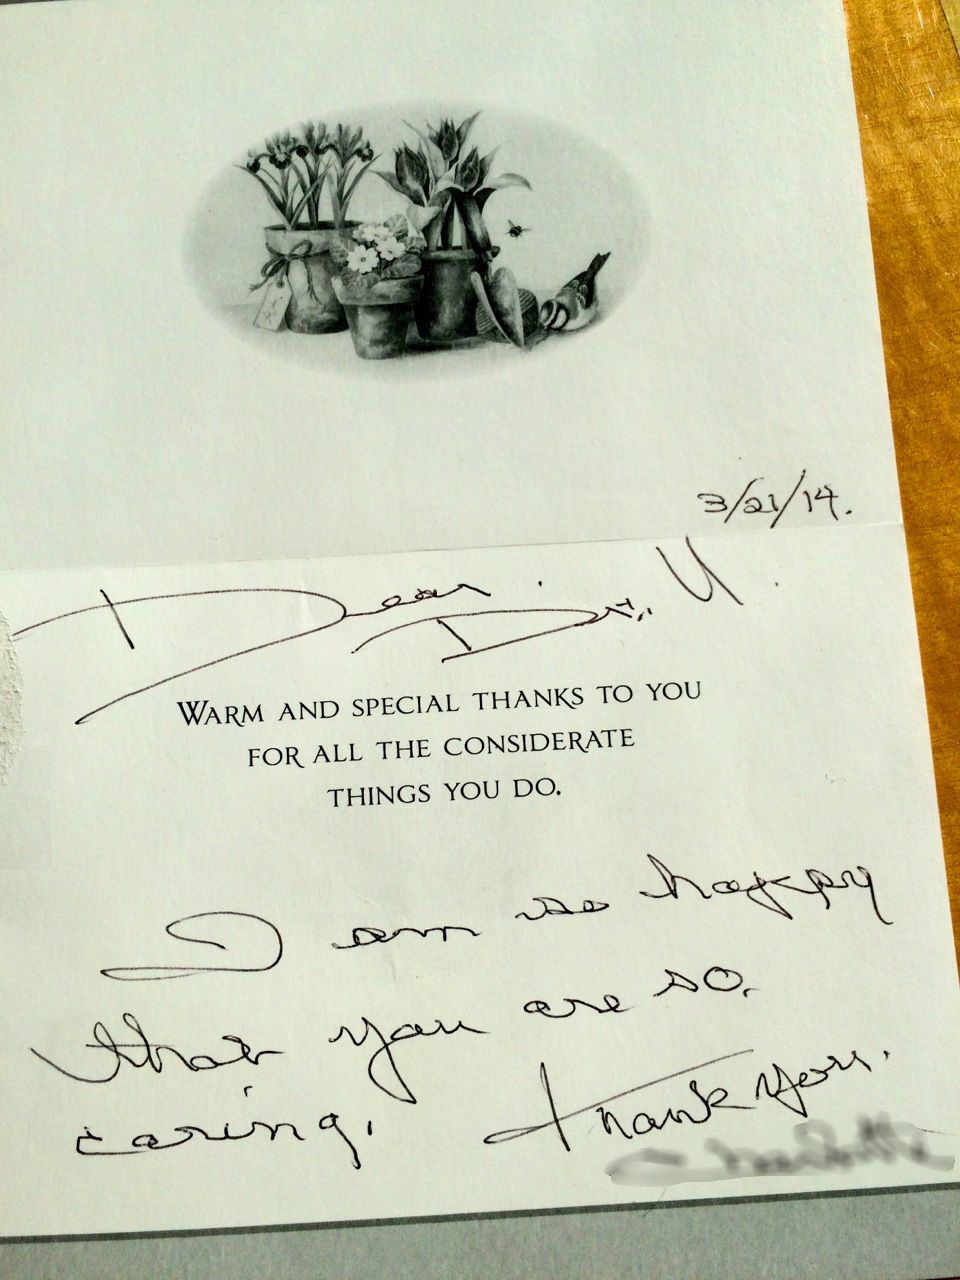 3/21/14.
Dear Dr. U.
WARM AND SPECIAL THANKS TO YOU
FOR ALL THE CONSIDERATE
THINGS YOU DO.
I am so happy
that you are so.
caring. Thank you.